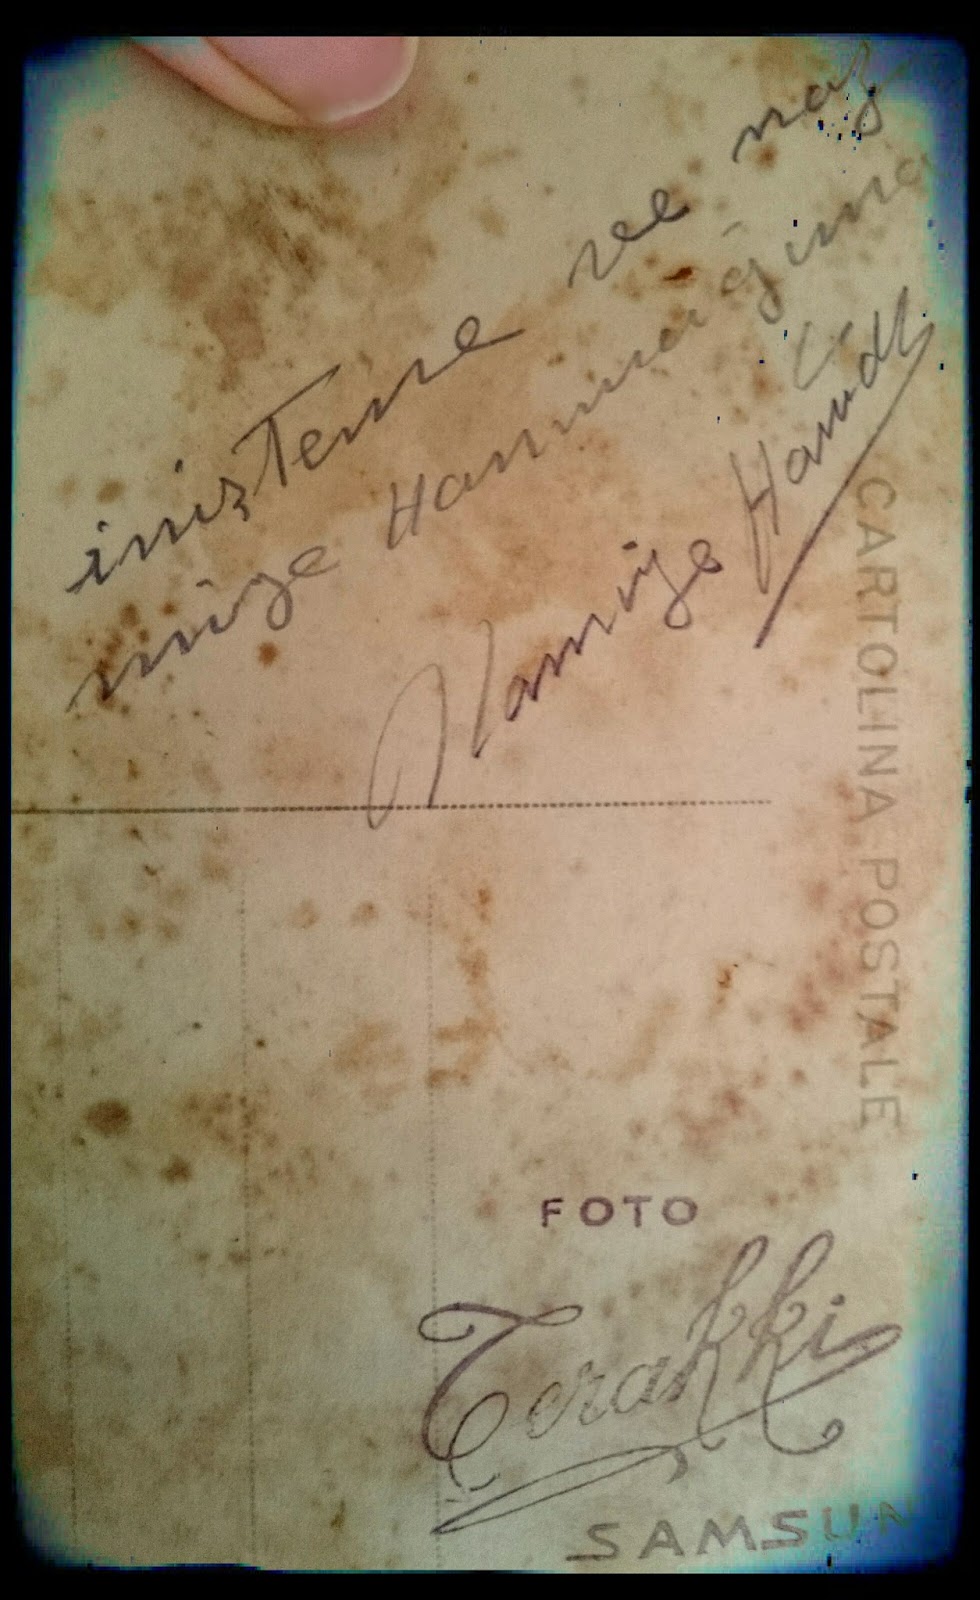 inizTenne ve naz
mize Hanım
Kamize Hamdi
CARTOLINA POSTALE
FOTO
Terakki
SAMSUN